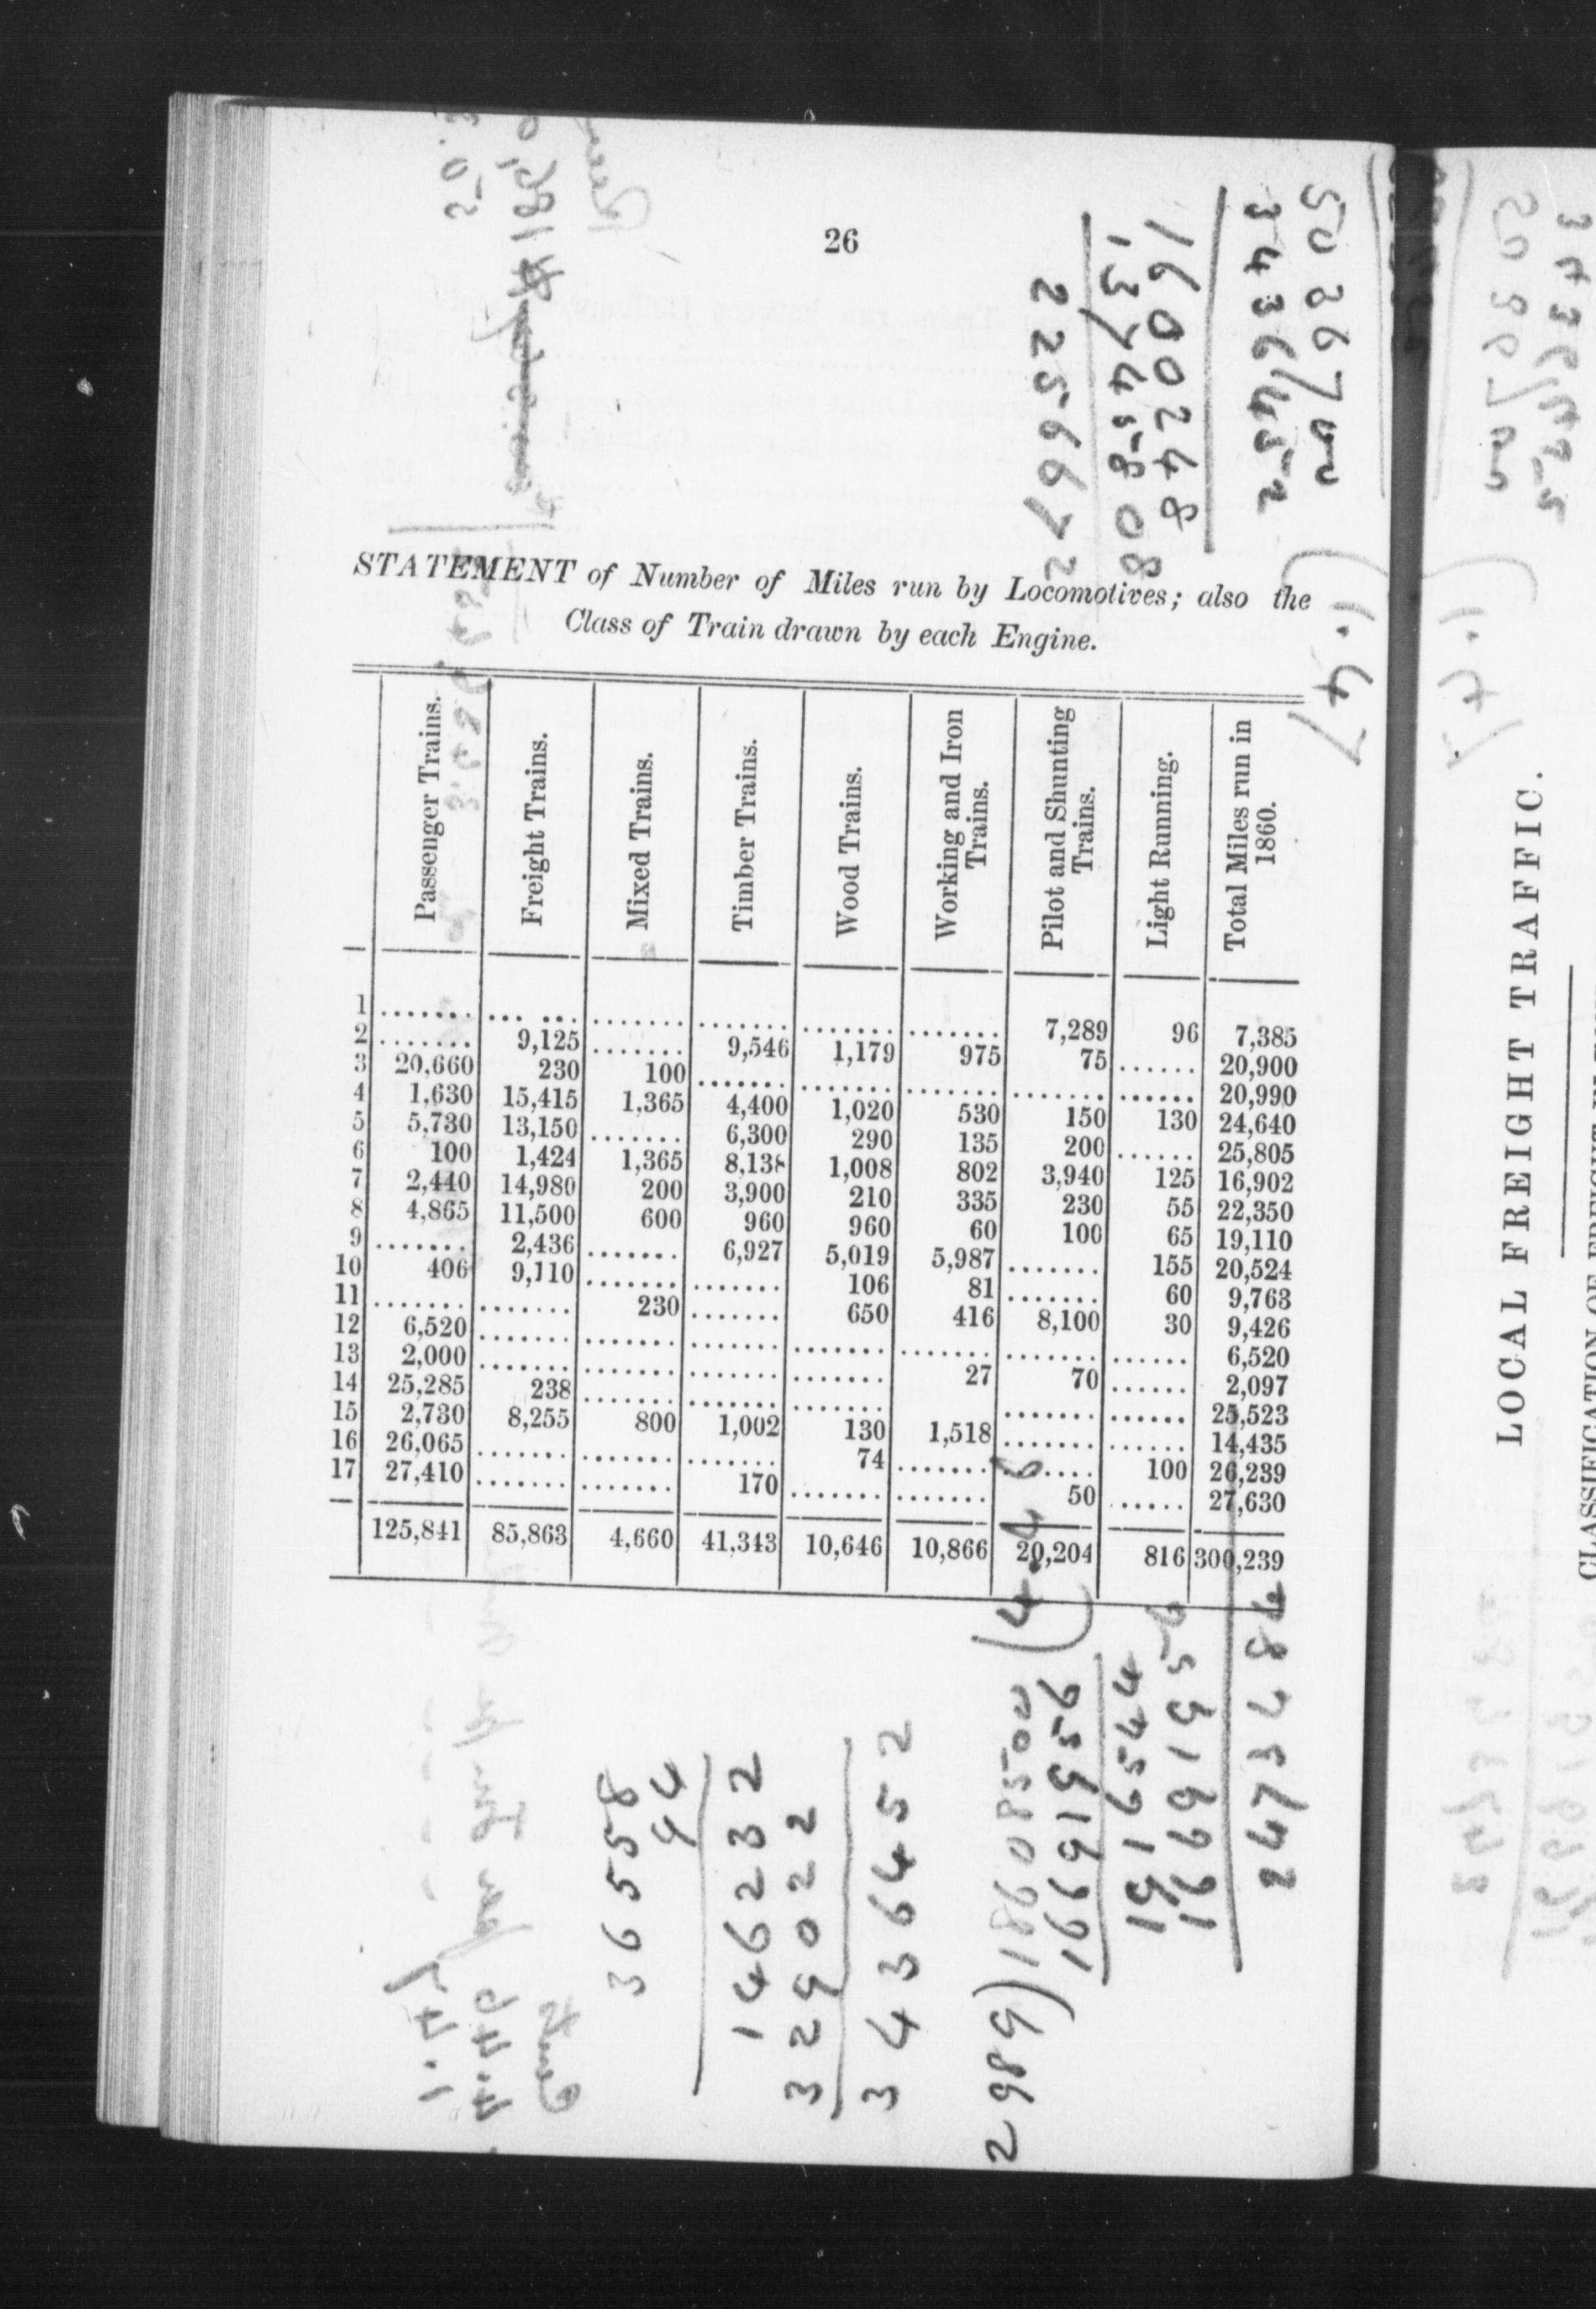 26
STATEMENT of Number of Miles run by Locomotives; also the
Class of Train drawn by each Engine.
Passenger Trains. Freight Trains. Mixed Trains. Timber Trains. Wood Trains. Working and Iron Trains. Pilot and Shunting Trains. Light Running. Total Miles run in 1860.
1 ....... ... ... ....... ....... ....... ....... 7,289 96 7,385
2 ....... 9,125 ....... 9,546 1,179 975 75 ...... 20,900
3 20,660 230 100 ....... ....... ....... ....... ...... 20,990
4 1,630 15,415 1,365 4,400 1,020 530 150 130 24,640
5 5,730 13,150 ....... 6,300 290 135 200 ...... 25,805
6 100 1,424 1,365 8,138 1,008 802 3,940 125 16,902
7 2,440 14,980 200 3,900 210 335 230 55 22,350
8 4,865 11,500 600 960 960 60 100 65 19,110
9 ....... 2,436 ....... 6,927 5,019 5,987 ....... 155 20,524
10 406 9,110 ....... ....... 106 81 ....... 60 9,763
11 ....... ....... 230 ....... 650 416 8,100 30 9,426
12 6,520 ....... ....... ....... ....... ....... ....... ...... 6,520
13 2,000 ....... ....... ....... ....... 27 70 ...... 2,097
14 25,285 238 ....... ....... ....... ....... ...... 25,523
15 2,730 8,255 800 1,002 130 1,518 ....... ...... 14,435
16 26,065 ....... ....... ....... 74 ....... ....... 100 26,239
17 27,410 ....... ....... 170 ....... ....... 50 ...... 27,630
125,841 85,863 4,660 41,343 10,646 10,866 20,204 816 300,239
36558
146232
329022
3436452
2989)
13745808
1600248
2256672
3436452
(1.47
LOCAL FREIGHT TRAFFIC.